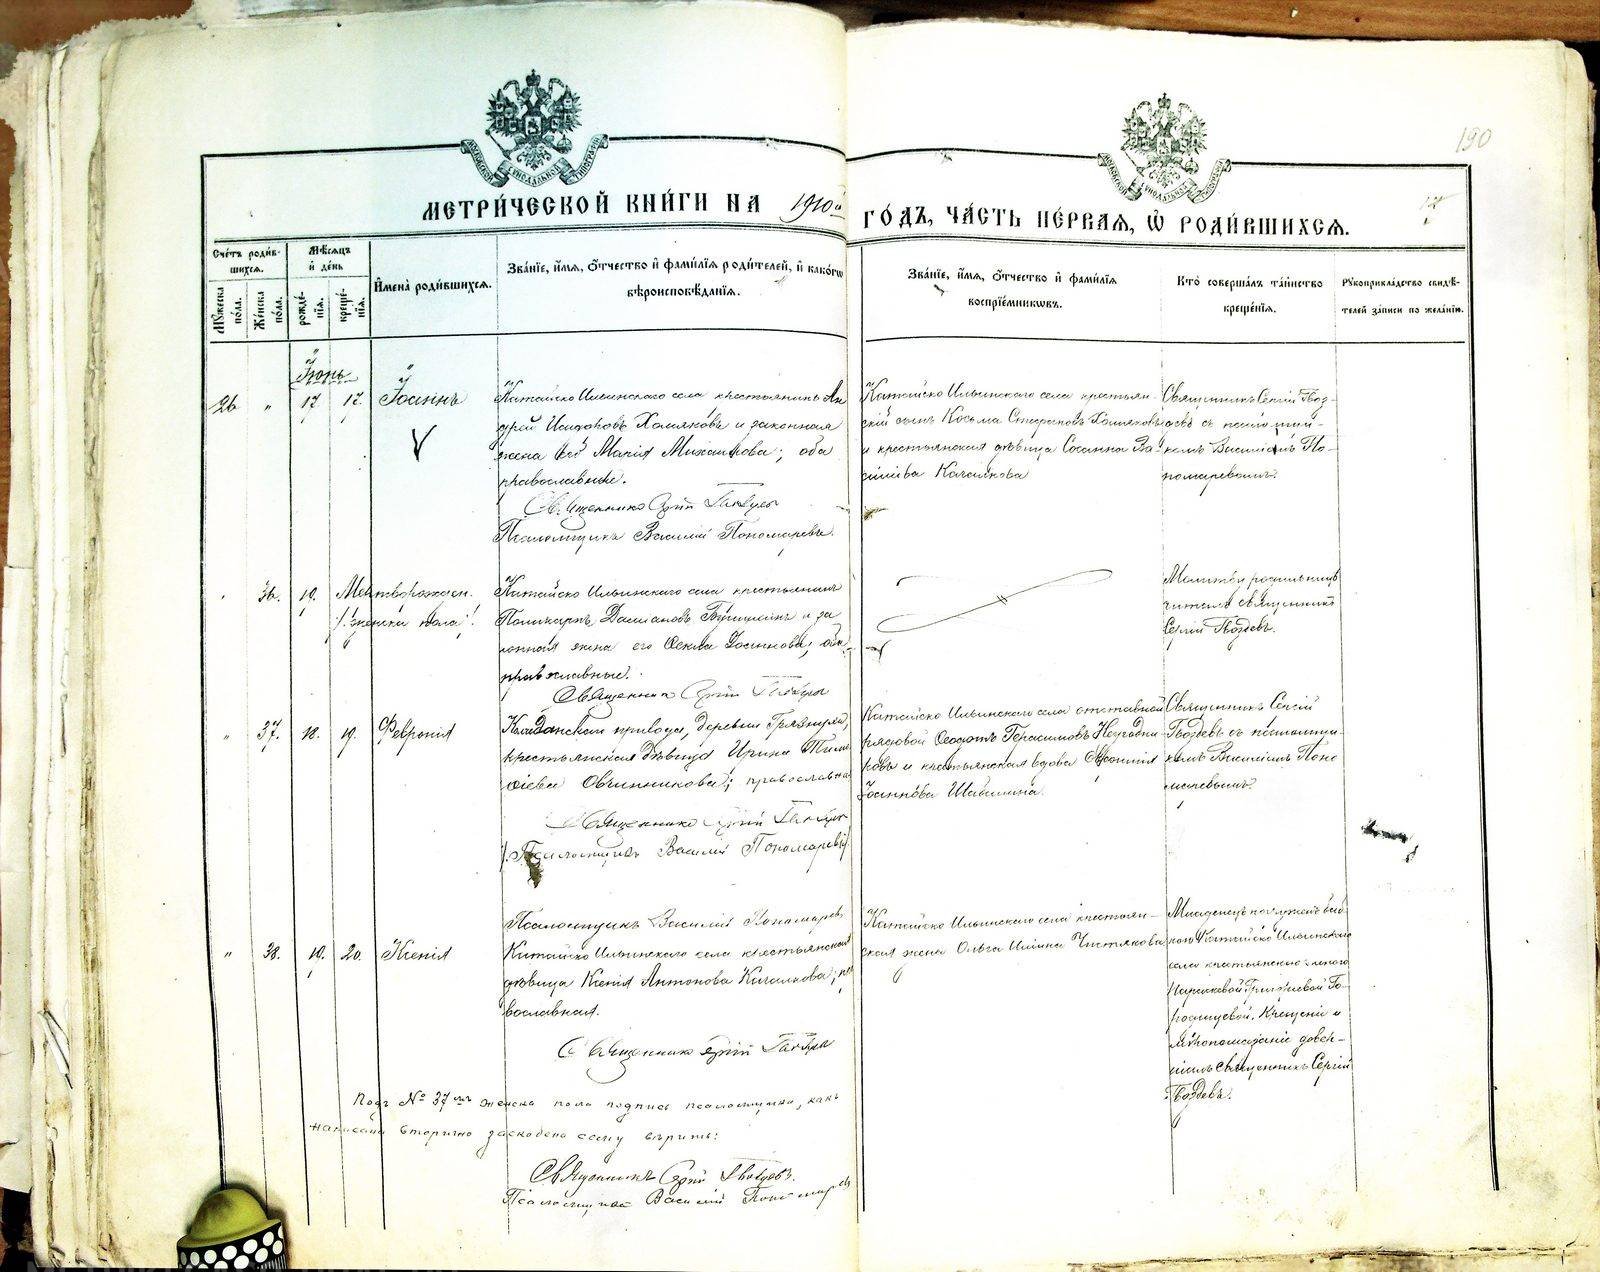 190
МЕТРИ́ЧЕСКОЙ КНИ́ГИ НА 1910й ГО́ДЪ, ЧА́СТЬ ПЕ́РВАЯ, Ѡ РОДИ́ВШИХСЯ.
Сче́тъ роди́в-
шихся.
Му́жеска по́ла.
Же́нска по́ла.
Мѣ́сяцъ
и де́нь
рожде́-
нїя.
креще́-
нїя.
Имена̀ роди́вшихся.
Зва́нїе, и́мя, о́тчество и фами́лїя роди́телей, и како́гѡ
вѣроисповѣ́данїя.
Зва́нїе, и́мя, о́тчество и фами́лїя
воспрїе́мникѡвъ.
Кто̀ соверша́лъ та́инство
креще́нїя.
Рꙋкоприкла́дство свидѣ́-
телей за́писи по жела́нїю.
Іюнь
26 " 17 17. Іоаннъ
Катайско Ильинскаго села крестьянинъ Ан
дрей Исидоровъ Хомяковъ и законная
жена его Марія Михаилова; оба
православные.
Священникъ Сергій Гвоздевъ
Псаломщикъ Василій Пономаревъ.
Катайско Ильинскаго села крестьян-
скій сынъ Косьма Стефановъ Хомяковъ
и крестьянская дѣвица Сосанна Ва-
сильева Качалкова
Священникъ Сергій Гвоз-
девъ съ псаломщи-
комъ Василіемъ По-
номаревымъ.
" 36. 19. Мертворожден.
/женска пола/.
Катайско Ильинскаго села крестьянинъ
Поликарпъ Даміановъ и за
конная жена его Ѳекла Іоаннова; оба
православные.
Священникъ Сергій Гвоздевъ
Молитву родильницѣ
читалъ священникъ
Сергій Гвоздевъ.
" 37. 18. 19. Февронія
прихода, деревни
крестьянская дѣвица Ирина Тимо
фіева Овчинникова; православная
Священникъ Сергій Гвоздевъ
/.Псаломщикъ Василій Пономаревъ/
Катайско Ильинскаго села отставной
рядовой Ѳеодотъ Герасимовъ
и крестьянская вдова
Іоаннова
Священникъ Сергій
Гвоздевъ съ псаломщи-
комъ Василіемъ Поно
маревымъ.
Псаломщикъ Василій Пономаревъ
" 38. 19. 20. Ксенія
Катайско Ильинскаго села крестьянская
дѣвица Ксенія Антонова Качалкова; пра
вославная.
Священникъ Сергій Гвоздевъ
Катайско Ильинскаго села крестьян-
ская жена Ольга Ильина Чистякова
Младенецъ погруженъ баб-
кою Катайско Ильинскаго
села крестьянскою женою
Параскевой Григоріевой Го-
родищевой. Крещеніе и
мѵропомазаніе довер-
шилъ священникъ Сергій
Гвоздевъ.
Подъ № 37мъ женска пола подпись псаломщика, какъ
написана вторично заскоблено сему вѣрить:
Священникъ Сергій Гвоздевъ.
Псаломщикъ Василій Пономаревъ